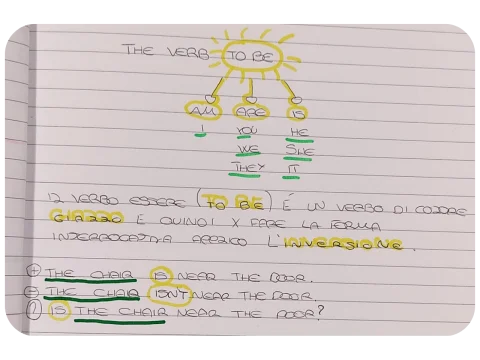 THE VERB TO BE
AM ARE IS
I YOU HE
WE SHE
THEY IT
IL VERBO ESSERE (TO BE) È UN VERBO DI COLORE
GIALLO E QUINDI X FARE LA FORMA
INTERROGATIVA APPLICO L'INVERSIONE.
+ THE CHAIR IS NEAR THE DOOR.
- THE CHAIR ISN'T NEAR THE DOOR.
? IS THE CHAIR NEAR THE DOOR?